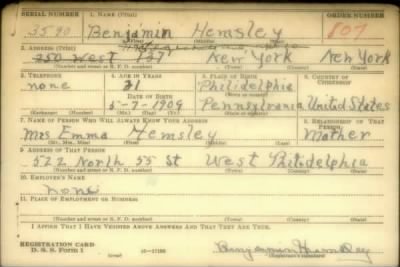 SERIAL NUMBER 1. NAME (Print) ORDER NUMBER
3580 Benjamin Hemsley 807
(First) (Middle) (Last)
2. ADDRESS (Print)
250 West 137 New York New York
(Number and street or R. F. D. number) (Town) (County) (State)
3. TELEPHONE 4. AGE IN YEARS 5. PLACE OF BIRTH 6. COUNTRY OF CITIZENSHIP
none 31 Philidelphia
DATE OF BIRTH (Town or county)
5-7-1909 Pennsylvania United States
(Exchange) (Number) (Mo.) (Day) (Yr.) (State or country)
7. NAME OF PERSON WHO WILL ALWAYS KNOW YOUR ADDRESS 8. RELATIONSHIP OF THAT PERSON
Mrs Emma Hemsley Mother
(Mr., Mrs., Miss) (First) (Middle) (Last)
9. ADDRESS OF THAT PERSON
522 North 55 St West Philidelphia
(Number and street or R. F. D. number) (Town) (County) (State)
10. EMPLOYER'S NAME
none
11. PLACE OF EMPLOYMENT OR BUSINESS
(Number and street or R. F. D. number) (Town) (County) (State)
I AFFIRM THAT I HAVE VERIFIED ABOVE ANSWERS AND THAT THEY ARE TRUE.
REGISTRATION CARD
D. S. S. Form 1 Benjamin Hemsley
(over) (Registrant's signature)